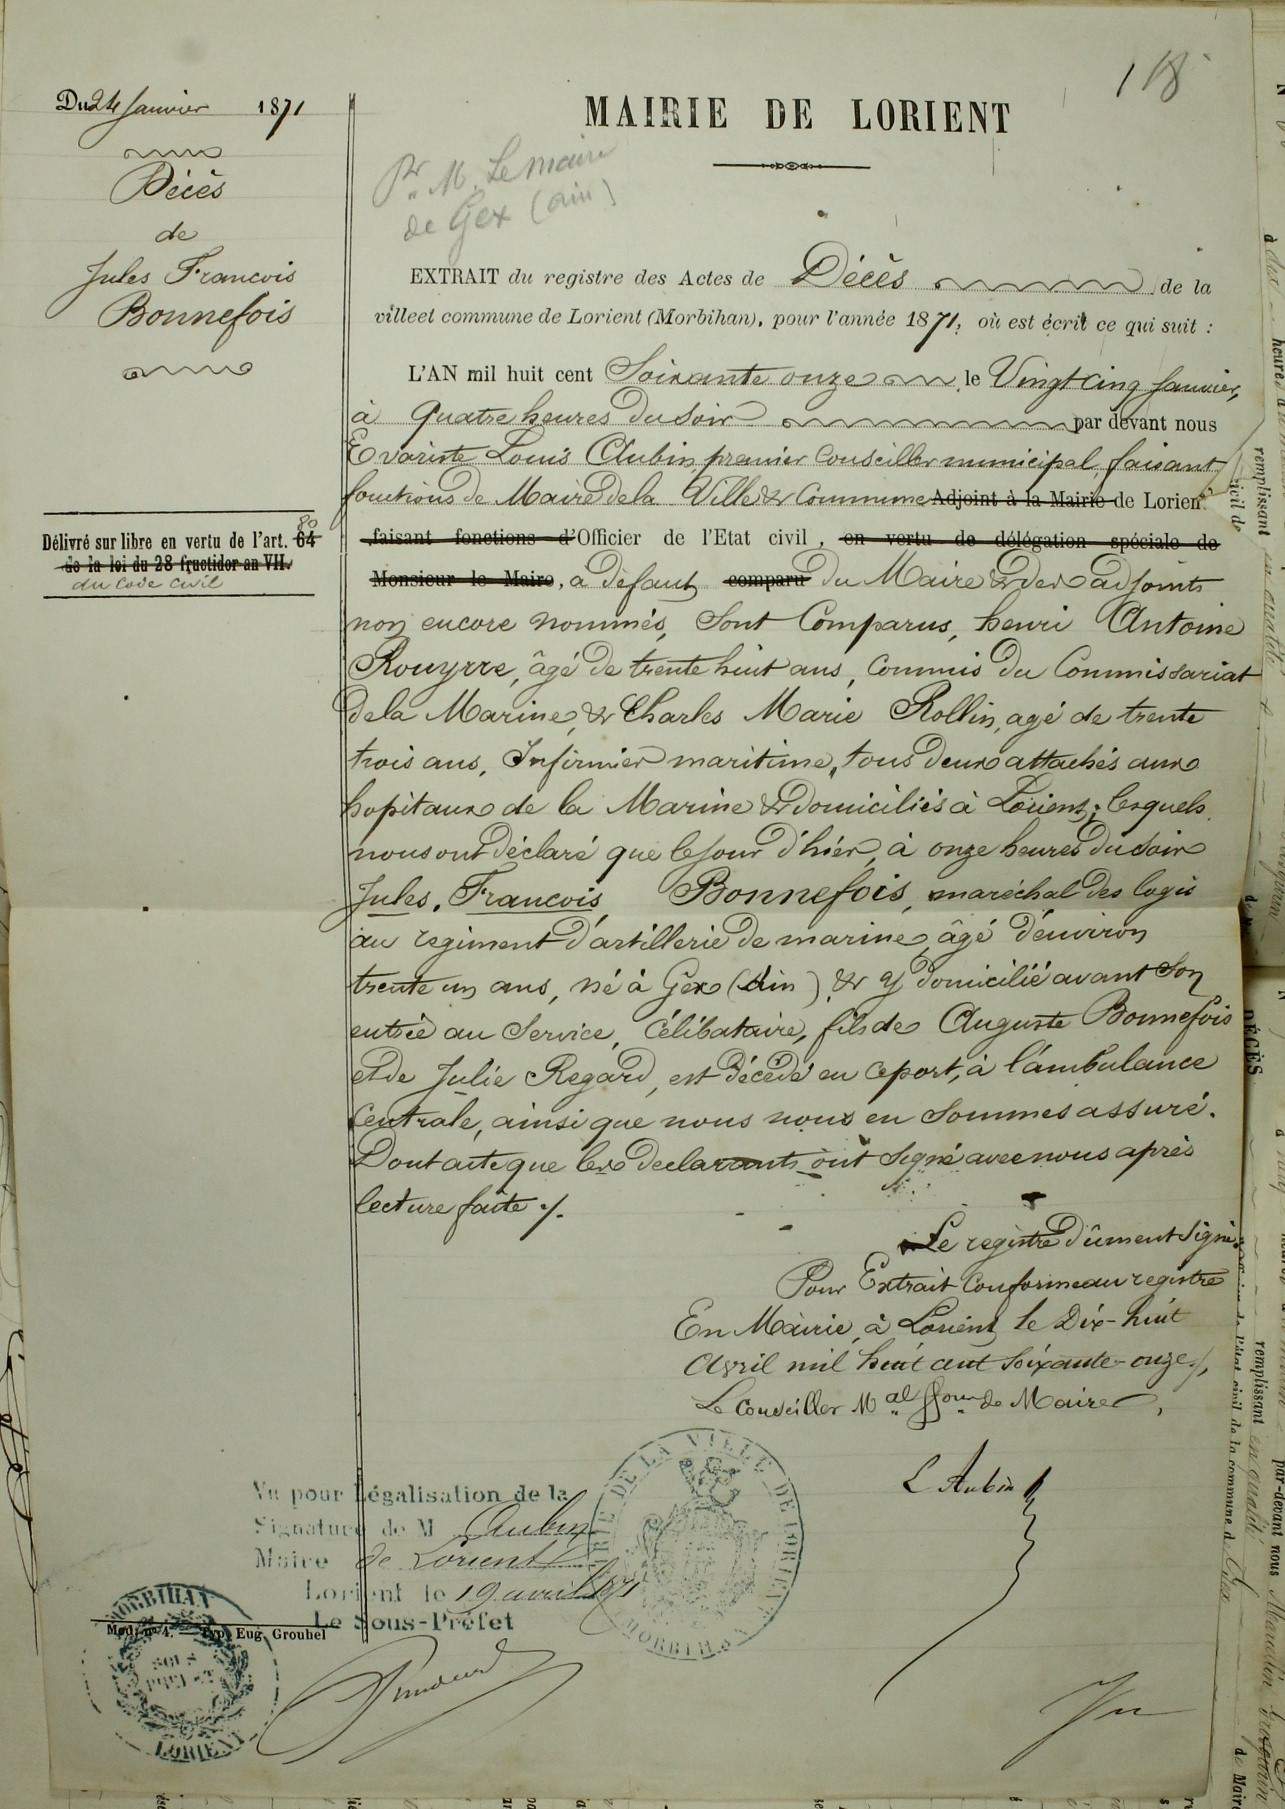 118
Du 24 Janvier 1871
Décès
de
Jules Francois
Bonnefois
Délivré sur libre en vertu de l'art. 64 80
de la loi du 28 fructidor an VII.
du Code Civil
MAIRIE DE LORIENT
Pr M. Le maire
de Gex (ain)
EXTRAIT du registre des Actes de Décès de la
ville et commune de Lorient (Morbihan), pour l'année 1871, où est écrit ce qui suit :
L'AN mil huit cent Soixante onze le Vingt cinq Janvier,
à quatre heures du soir par devant nous
Evariste Louis Aubin, premier Conseiller municipal, faisant
fonctions de Maire de la Ville & Commune Adjoint à la Mairie de Lorient
faisant fonctions d'Officier de l'Etat civil, en vertu de délégation spéciale de
Monsieur le Maire, à défaut comparu du Maire & des adjoints
non encore nommés, Sont Comparus, henri Antoine
Rouyrre, âgé de trente huit ans, commis du Commissariat
de la Marine, & Charles Marie Rollin, agé de trente
trois ans, Infirmier maritime, tous deux attachés aux
hopitaux de la Marine & domiciliés à Lorient; lesquels
nous ont déclaré que le jour d'hier, à onze heures du soir
Jules, Francois Bonnefois, maréchal des logis
au regiment d'artillerie de marine, âgé d'environ
trente un ans, né à Gex (Ain) & y domicilié avant son
entrée au Service, Célibataire, fils de Auguste Bonnefois
et de Julie Regard, est décédé en ce port, à l'ambulance
Centrale, ainsi que nous nous en sommes assuré.
Dont acte que les declarants ont signé avec nous après
lecture faite ./.
Le registre dûment signé.
Pour Extrait Conforme au registre
En Mairie, à Lorient le Dix-huit
Avril mil huit cent soixante-onze./,
Le Conseiller Mal ffons de Maire,
L Aubin
Vu pour Légalisation de la
Signature de M Aubin
Maire de Lorient
Lorient le 19 avril 1871
Le Sous-Préfet
MAIRIE DE LA VILLE DE LORIENT
MORBIHAN
Mod. no 4. — Typ. Eug. Grouhel
MORBIHAN
SOUS
PRÉFET
LORIENT